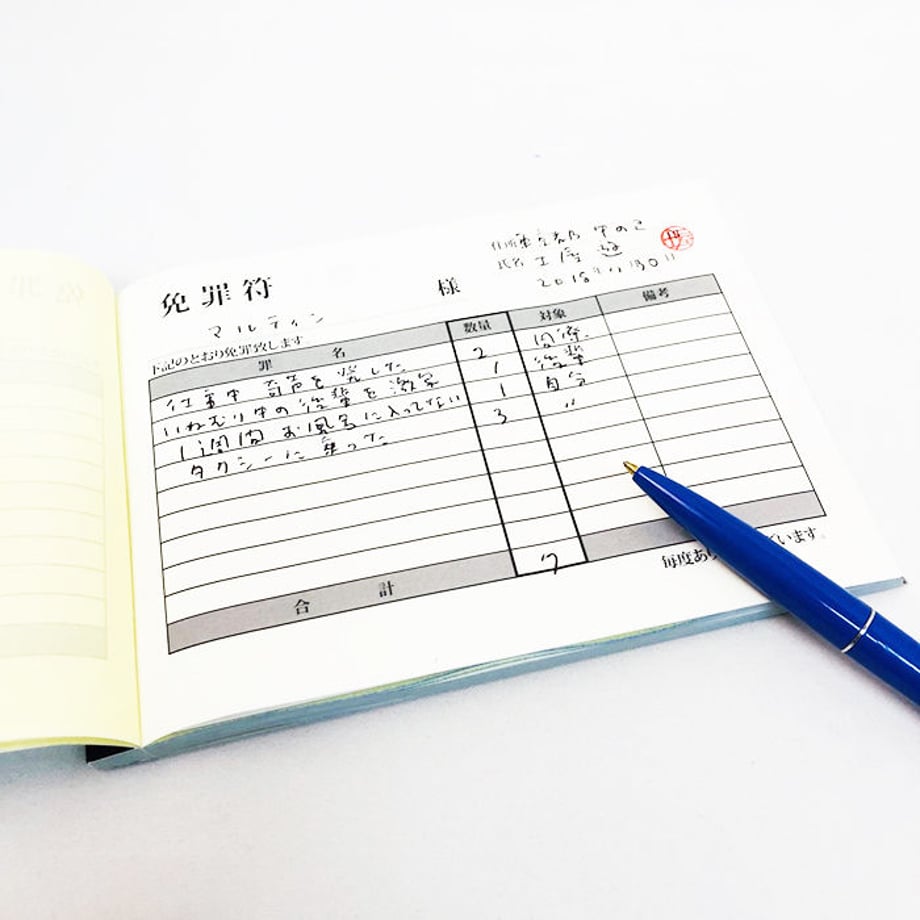 住所 東京都 中のこ
氏名 土屋 遊
免罪符 様
マルティン
下記のとおり免罪致します
罪名 数量 対象 備考
仕事中 奇声を発した 2 同僚
いねむり中の後輩を激写 1 後輩
1週間 お風呂に入ってない 1 自分
タクシーに乗った 3 〃
合計 7
毎度あり います。